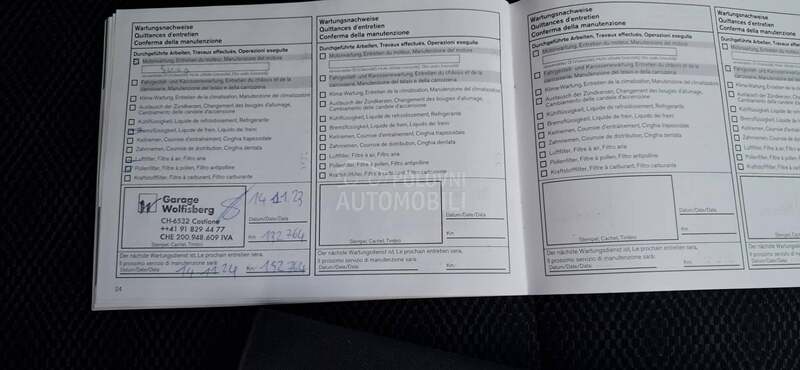 Wartungsnachweise
Quittances d'entretien
Conferma della manutenzione
Durchgeführte Arbeiten, Travaux effectués, Operazioni eseguite
Motorwartung, Entretien du moteur, Manutenzione del motore
Fahrgestell- und Karosseriewartung, Entretien du châssis et de la
carrosserie, Manutenzione del telaio e della carrozzeria
Klima-Wartung, Entretien de la climatisation, Manutenzione del climatizzatore
Austausch der Zündkerzen, Changement des bougies d'allumage,
Cambiamento delle candele d'accensione
Kühlflüssigkeit, Liquide de refroidissement, Refrigerante
Bremsflüssigkeit, Liquide de frein, Liquido dei freni
Keilriemen, Courroie d'entraînement, Cinghia trapezoidale
Zahnriemen, Courroie de distribution, Cinghia dentata
Luftfilter, Filtre à air, Filtro aria
Pollenfilter, Filtre à pollen, Filtro antipolline
Kraftstofffilter, Filtre à carburant, Filtro carburante
Garage
Wolfisberg
CH-6532 Castione
++41 91 829 44 77
CHE 200.948.609 IVA
Stempel, Cachet, Timbro
14.11.23
Datum/Date/Data
Km 132764
Der nächste Wartungsdienst ist, Le prochain entretien sera,
Il prossimo servizio di manutenzione sarà:
Datum/Date/Data 14.11.24 Km 152764
24
Wartungsnachweise
Quittances d'entretien
Conferma della manutenzione
Durchgeführte Arbeiten, Travaux effectués, Operazioni eseguite
Motorwartung, Entretien du moteur, Manutenzione del motore
Fahrgestell- und Karosseriewartung, Entretien du châssis et de la
carrosserie, Manutenzione del telaio e della carrozzeria
Klima-Wartung, Entretien de la climatisation, Manutenzione del climatizzatore
Austausch der Zündkerzen, Changement des bougies d'allumage,
Cambiamento delle candele d'accensione
Kühlflüssigkeit, Liquide de refroidissement, Refrigerante
Bremsflüssigkeit, Liquide de frein, Liquido dei freni
Keilriemen, Courroie d'entraînement, Cinghia trapezoidale
Zahnriemen, Courroie de distribution, Cinghia dentata
Luftfilter, Filtre à air, Filtro aria
Pollenfilter, Filtre à pollen, Filtro antipolline
Kraftstofffilter, Filtre à carburant, Filtro carburante
POLOVNI
AUTOMOBILI
Datum/Date/Data
Km
Stempel, Cachet, Timbro
Der nächste Wartungsdienst ist, Le prochain entretien sera,
Il prossimo servizio di manutenzione sarà:
Datum/Date/Data Km
Wartungsnachweise
Quittances d'entretien
Conferma della manutenzione
Durchgeführte Arbeiten, Travaux effectués, Operazioni eseguite
Motorwartung, Entretien du moteur, Manutenzione del motore
Fahrgestell- und Karosseriewartung, Entretien du châssis et de la
carrosserie, Manutenzione del telaio e della carrozzeria
Klima-Wartung, Entretien de la climatisation, Manutenzione del climatizzatore
Austausch der Zündkerzen, Changement des bougies d'allumage,
Cambiamento delle candele d'accensione
Kühlflüssigkeit, Liquide de refroidissement, Refrigerante
Bremsflüssigkeit, Liquide de frein, Liquido dei freni
Keilriemen, Courroie d'entraînement, Cinghia trapezoidale
Zahnriemen, Courroie de distribution, Cinghia dentata
Luftfilter, Filtre à air, Filtro aria
Pollenfilter, Filtre à pollen, Filtro antipolline
Kraftstofffilter, Filtre à carburant, Filtro carburante
Datum/Date/Data
Km
Stempel, Cachet, Timbro
Der nächste Wartungsdienst ist, Le prochain entretien sera,
Il prossimo servizio di manutenzione sarà:
Datum/Date/Data Km